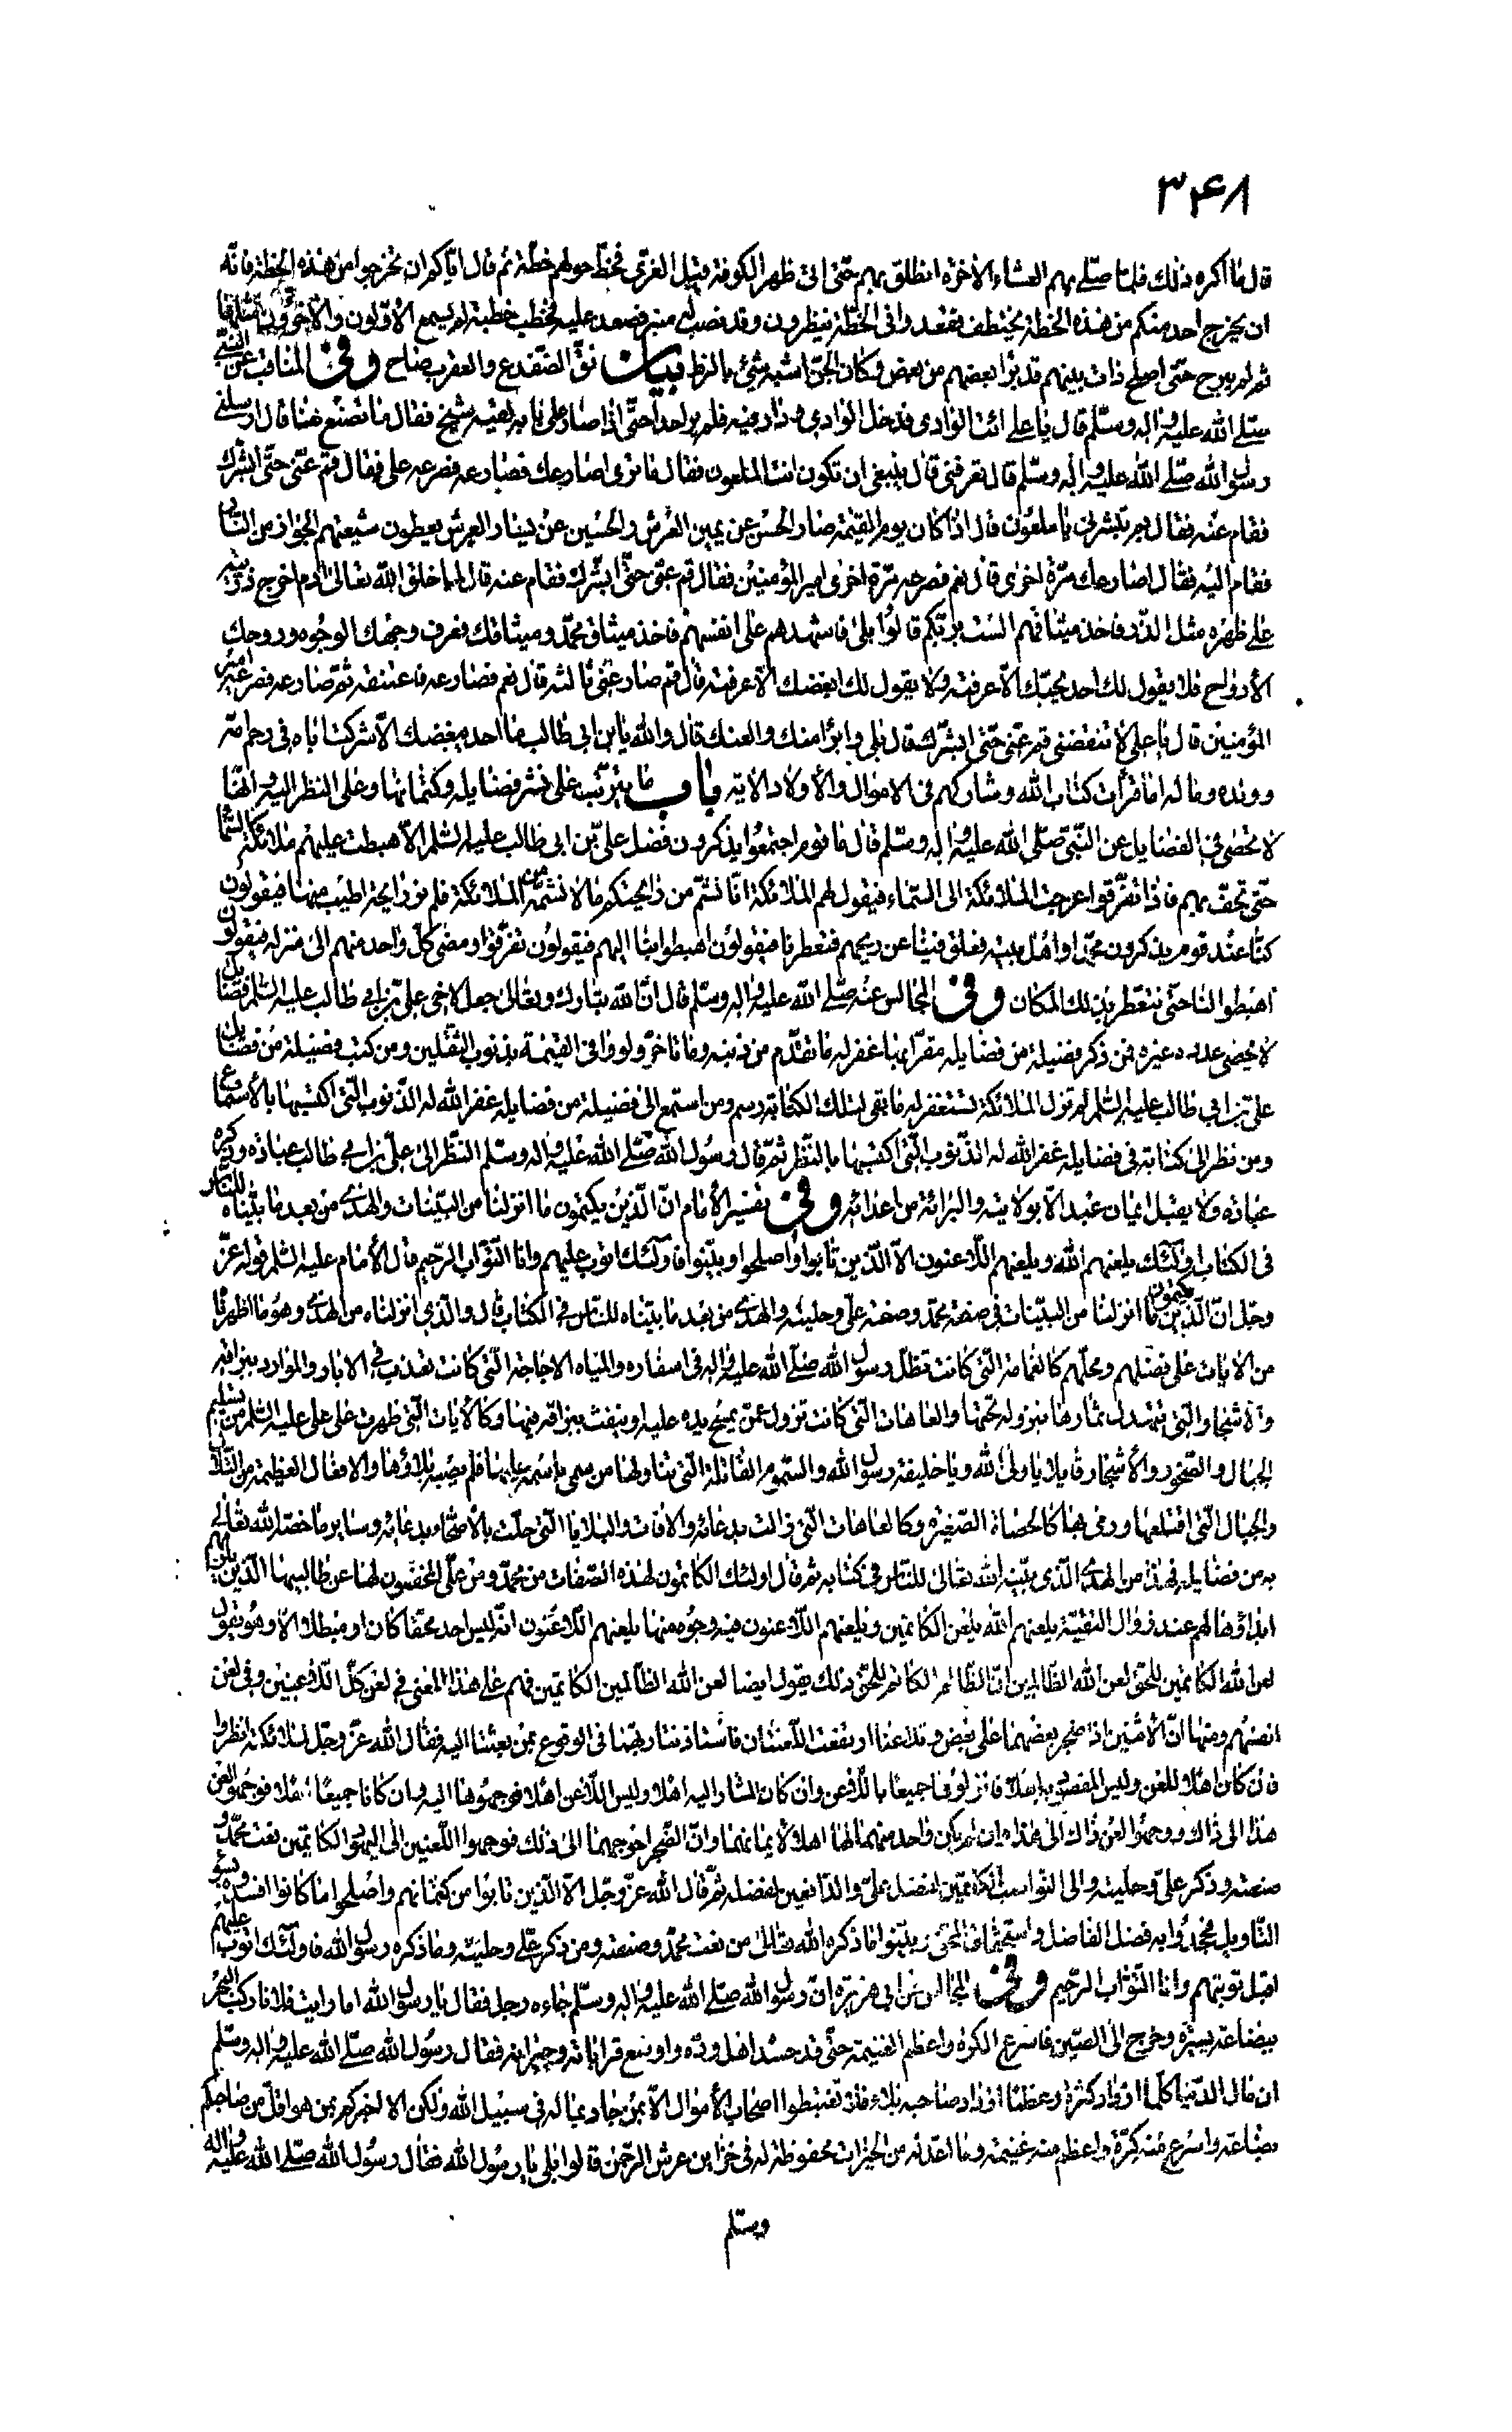 ٣۴٨
قال ما اكره ذلك فلمّا صلّى بهم العشاء الآخرة انطلق بهم حتّى اتى ظهر الكوفة قبل الغرى فخطّ حولهم خطّة ثم قال ايّاكم ان تخرجوا من هذه الخطّة فانّه
ان يخرج احد منكم من هذه الخطة يختطف فقعدوا فى الخطّة ينظرون وقد نصب له منبر فصعد عليه فخطب خطبة لم يسمع الأوّلون والآخرون بمثلها
ثم لم يبرح حتّى اصلح ذات بينهم قد برأ بعضهم من بعض وكان الجنّ اشبه شئ بالزط بيان نقّ الضّفدع والعقرب صاح وفى المناقب عن النبى
صلّى الله عليه واله وسلّم قال يا على ائت الوادى فدخل الوادى ودار فيه فلم ير احدا حتّى اذا صار على بابه لقيه شيخ فقال ما تصنع هنا قال ارسلنى
رسول الله صلّى الله عليه واله وسلّم قال تعرفنى قال ينبغى ان تكون انت الملعون فقال ما ترى اصارعك فصارعه فصرعه على فقال قم عنّى حتّى ابشّرك
فقام عنه فقال بم تبشرنى يا ملعون قال اذا كان يوم القيمة صار الحسن عن يمين العرش والحسين عن يسار العرش يعطون شيعتهم الجواز من النار
فقام اليه فقال اصارعك مرّة اخرى قال نعم فصرعه مرّة اخرى امير المؤمنين فقال قم عنّى حتّى ابشّرك فقام عنه قال لما خلق الله تعالى ادم اخرج ذرّيته
على ظهره مثل الذر فاخذ ميثاقهم الست بربّكم قالوا بلى فاشهدهم على انفسهم فاخذ ميثاق محمّد وميثاقك فعرف وجهك الوجوه وروحك
الأرواح فلا يقول لك احد يحبّك الّا عرفته ولا يقول لك ابغضك الّا عرفته قال قم صارعنى ثالثة قال نعم فصارعه فاعتنقه ثمّ صارعه فصرعه امير
المؤمنين قال يا على لا تنغضنى قم عنّى حتّى ابشّرك قال بلى وابرأ منك والعنك قال والله يابن ابى طالب ما احد يبغضك الّا شركت اباه فى رحم امّه
وولده وماله اما قرأت كتاب الله وشاركهم فى الاموال والأولاد الاية باب ما يترتّب على نشر فضايله وكتمانها وعلى النظر اليه وانّها
لا تحصى فى الفضايل عن النّبىّ صلّى الله عليه واله وسلّم قال ما قوم اجتمعوا يذكرون فضل علىّ بن ابى طالب عليه السّلم الّا هبطت عليهم ملائكة السّماء
حتّى تحفّ بهم فاذا تفرّقوا عرجت الملائكة الى السّماء فيقول لهم الملائكة انّا نشمّ من رايحتكم ما لا نشمّه من الملائكة فلم نر رايحة اطيب منها فيقولون
كنّا عند قوم يذكرون محمّدا واهل بيته فعلق فينا عن ريحهم فتعطرنا فيقولون اهبطوا بنا اليهم فيقولون تفرّقوا ومضى كلّ واحد منهم الى منزله فيقولون
اهبطوا بنا حتّى نتعطر بذلك المكان وفى المجالس عنه صلّى الله عليه واله وسلّم قال انّ الله تبارك وتعالى جعل لاخى علىّ بن ابى طالب عليه السّلم فضايل
لا يحصى عددها غيره فمن ذكر فضيلة من فضايله مقرّا بها غفر له ما تقدّم من ذنبه وما تأخّر ولو وافى القيمة بذنوب الثقلين ومن كتب فضيلة من فضايل
علىّ بن ابى طالب عليه السّلم لم تزل الملائكة تستغفر له ما بقى لتلك الكتابة رسم ومن استمع الى فضيلة من فضايله غفر الله له الذّنوب الّتى اكتسبها بالأستماع
ومن نظر الى كتابة فى فضايله غفر الله له الذّنوب الّتى اكتسبها بالنّظر ثمّ قال رسول الله صلّى الله عليه واله وسلّم النّظر الى علىّ بن ابى طالب عبادة وذكره
عبادة ولا يقبل ايمان عبد الّا بولايته والبرائة من اعدائه وفى تفسير الأمام انّ الّذين يكتمون ما انزلنا من البيّنات والهدى من بعد ما بيّناه للنّاس
فى الكتاب اولئك يلعنهم الله ويلعنهم اللّاعنون الّا الّذين تابوا واصلحوا وبيّنوا فاولئك اتوب عليهم وانا التّوّاب الرّحيم قال الأمام عليه السّلم قوله عزّ
وجلّ انّ الّذين يكتمون ما انزلنا من البيّنات فى صفة محمّد وصفة علىّ وحليته والهدى من بعد ما بيّناه للنّاس فى الكتاب قال والّذى انزلناه من الهدى وهو ما اظهرنا
من الايات على فضلهم ومحلّهم كالغمامة الّتى كانت تظلّ رسول الله صلّى الله عليه واله فى اسفاره والمياه الاجاجة الّتى كانت تعذب فى الابار والموارد ببزاقه
والأشجار الّتى تتهدل ثمارها بنزوله تحتها والعاهات الّتى كانت تزول عمّن يمسح يده عليه او ينفث ببزاقه فيها وكالأيات الّتى ظهرت على على عليه السّلم من تسليم
الجبال والصّخور والأشجار قايلة يا ولىّ الله ويا خليفة رسول الله والسّموم القاتلة الّتى تناولها من سمّى باسمه عليها فلم يصبه بلاؤها والافعال العظيمة من التّلال
والجبال الّتى اقتلعها ورمى بها كالحصاة الصّغيرة وكالعاهات الّتى زالت بدعائه والافات والبلايا الّتى حلّت بالأصحّاء بدعائه وساير ما خصّه الله تعالى
به من فضايله فهذا من الهدى الّذى بيّنه الله تعالى للنّاس فى كتابه ثم قال اولئك الكاتمون لهذه الصّفات من محمّد ومن علىّ المخفون لها عن طالبيها الّذين يلزمهم
ابداؤها لهم عند زوال التّقيّة يلعنهم الله يلعن الكاتمين ويلعنهم اللّاعنون فيه وجوه منها يلعنهم اللّاعنون انّه ليس احد محقّا كان او مبطلا الّا وهو يقول
لعن الله الكاتمين للحقّ لعن الله الظّالمين انّ الظّالم الكاتم للحقّ ذلك يقول ايضا لعن الله الظّالمين الكاتمين فهم على هذا المعنى فى لعن كلّ اللّاعنين وفى لعن
انفسهم ومنها انّ الأثنين اذا ضجر بعضهما على بعض وتلاعنا ارتفعت اللّعنتان فاستاذنتا ربّهما فى الوقوع بمن بعثتا اليه فقال الله عزّ وجلّ لملائكته انظروا
فان كان اهلا للعن وليس المقصود به اهلا فانزلوهما جميعا باللّاعن وان كان المشار اليه اهلا وليس اللّاعن اهلا فوجّهوهما اليه وان كانا جميعا اهلا فوجّهوا لعن
هذا الى ذاك ووجّهوا لعن ذاك الى هذا وان لم يكن واحد منهما لها اهلا لأيمانهما وانّ الضّجر احوجهما الى ذلك فوجّهوا اللّعنتين الى اليهود الكاتمين نعت محمّد و
صفته وذكر علىّ وحليته والى النواصب الكاتمين لفضل علىّ والدّافعين لفضله ثمّ قال الله عزّ وجلّ الّا الّذين تابوا من كتمانهم واصلحوا ما كانوا افسدوه بسوء
التّاويل فجحدوا به فضل الفاضل واستحقاق المحقّ وبيّنوا ما ذكره الله تعالى من نعت محمّد وصفته ومن ذكر علىّ وحليته وما ذكره رسول الله فاولئك اتوب عليهم
اقبل توبتهم وانا التّوّاب الرّحيم وفى المجالس عن ابى هريرة انّ رسول الله صلّى الله عليه واله وسلّم جاءه رجل فقال يا رسول الله اما رايت فلانا ركب البحر
ببضاعة يسيرة وخرج الى الصّين فاسرع الكرّة واعظم الغنيمة حتّى قد حسد اهل ودّه واوسع قراباته وجيرانه فقال رسول الله صلّى الله عليه واله وسلّم
ان مال الدّنيا كلّما ازداد كثرة وعظما ازداد صاحبه بلاء فلا تغتبطوا اصحاب الأموال الّا بمن جاد بماله فى سبيل الله ولكن الا اخبركم بمن هو اقلّ من صاحبكم
بضاعة واسرع منه كرّة واعظم منه غنيمة وما اعدّ له من الخيرات محفوظة له فى خزاين عرش الرّحمن قالوا بلى يا رسول الله فقال رسول الله صلّى الله عليه واله
وسلّم